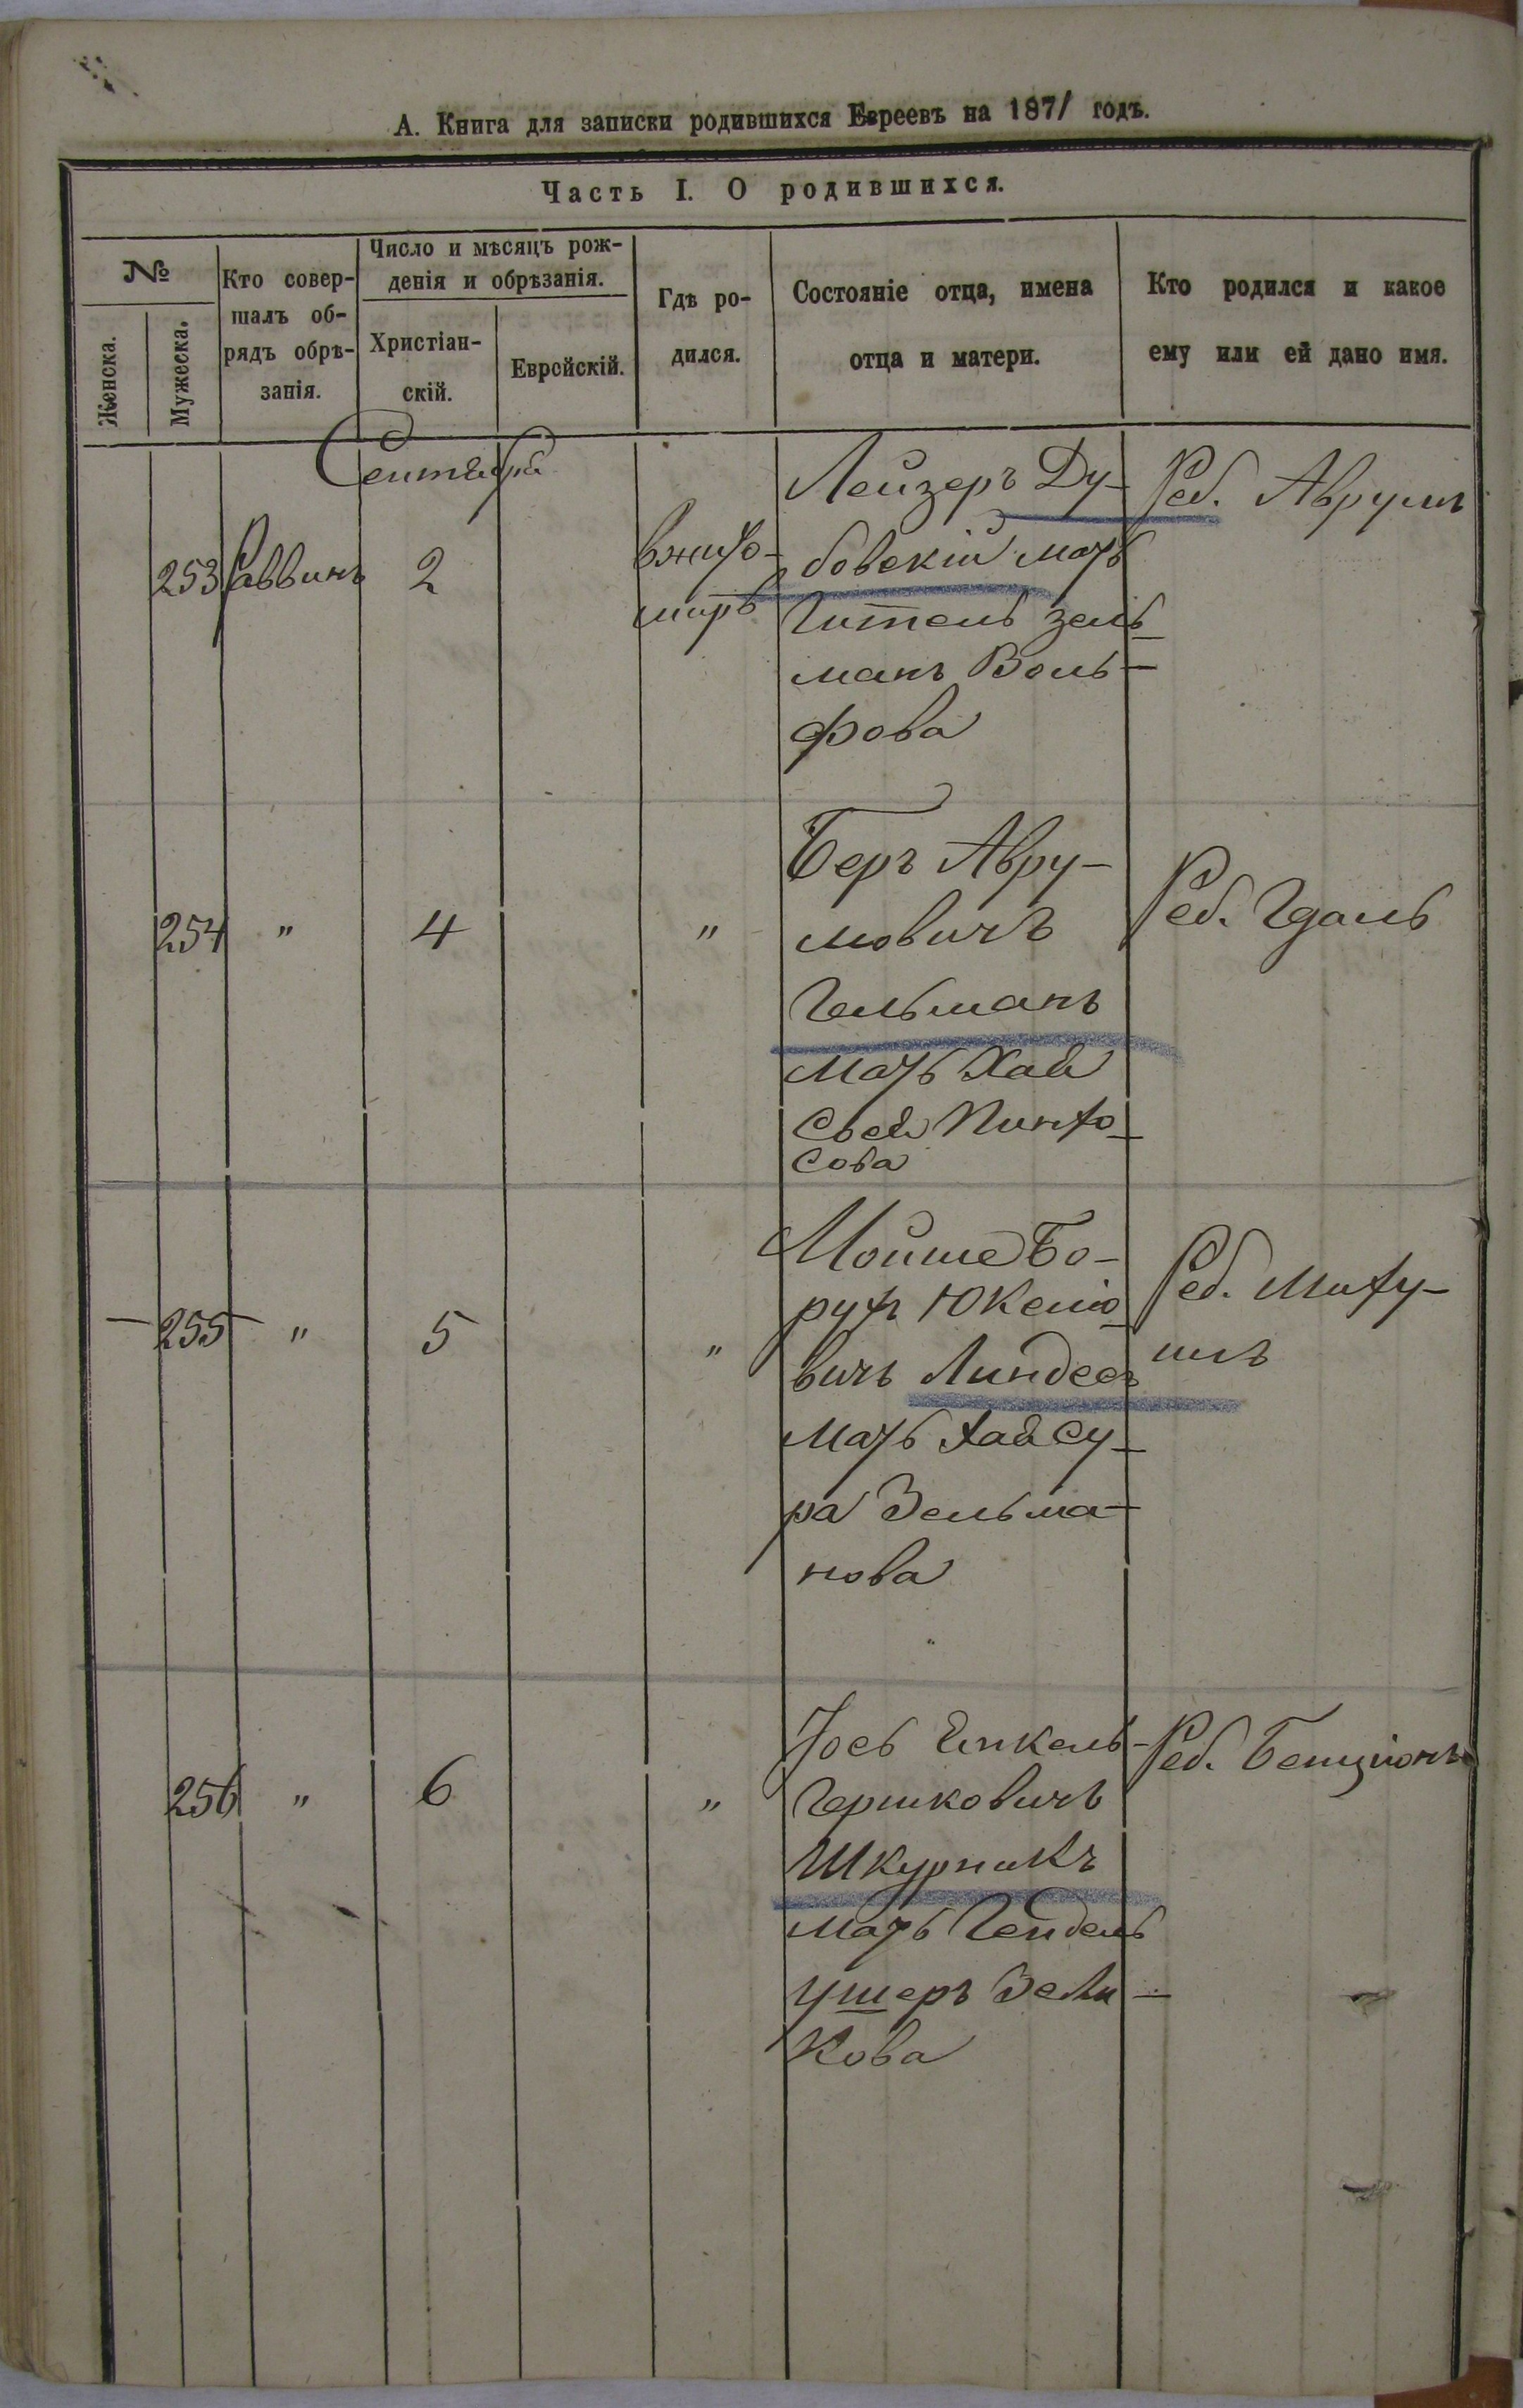 А. Книга для записки родившихся Евреевъ на 1871 годъ.
Часть I. О родившихся.
№
Женска.
Мужеска.
Кто совер-
шалъ об-
рядъ обрѣ-
занія.
Число и мѣсяцъ рож-
денія и обрѣзанія.
Христіан-
скій.
Еврейскій.
Гдѣ ро-
дился.
Состояніе отца, имена
отца и матери.
Кто родился и какое
ему или ей дано имя.
Сентября
253 Раввинъ 2
вжито-
миръ
Лейзеръ Ду-
бовскій мать
Гитель Зель-
манъ Воль-
фова
Реб. Аврумъ
254 " 4 "
Беръ Авру-
мовичъ
Гельманъ
мать Хая
Сося Пинхо-
сова
Реб. Гдаль
— 255 — " 5 "
Мойше Бо-
рухъ Юкелио-
вичъ Линдесъ
мать Хая Су-
ра Зельма-
нова
Реб. Миху-
илъ
256 " 6 "
Іось Енкель-
Гершковичъ
Шкурникъ
мать Гендель
Ушеръ Зели-
кова
Реб. Бенціонъ